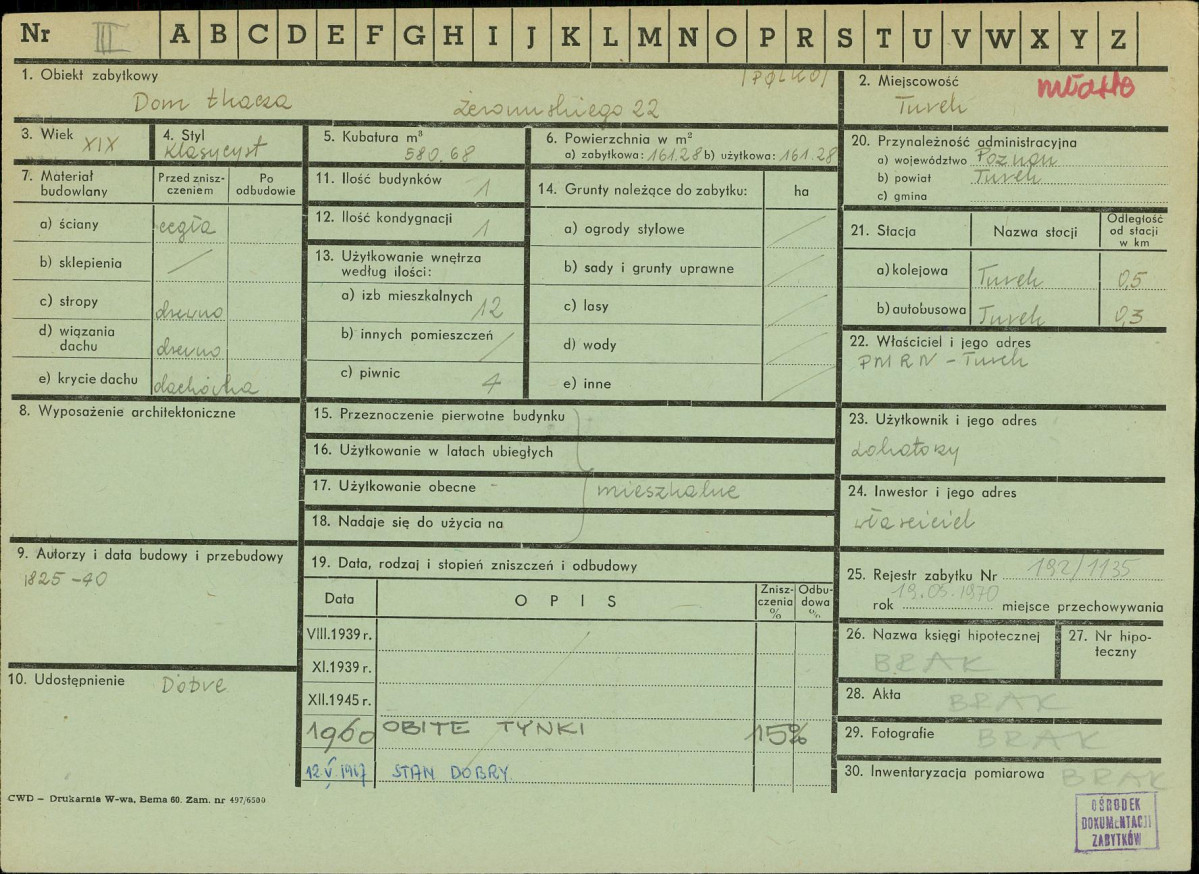 Nr III A B C D E F G H I J K L M N O P R S T U V W X Y Z
1. Obiekt zabytkowy
Dom tkacza Żeromskiego 22
2. Miejscowość miasto
Turek
3. Wiek XIX
4. Styl klasycyst
5. Kubatura m³
580,68
6. Powierzchnia w m²
a) zabytkowa: 161.28 b) użytkowa: 161.28
7. Materiał budowlany
Przed zniszczeniem
Po odbudowie
a) ściany cegła
b) sklepienia /
c) stropy drewno
d) wiązania dachu drewno
e) krycie dachu dachówka
8. Wyposażenie architektoniczne
9. Autorzy i data budowy i przebudowy
1825-40
10. Udostępnienie Dobre
11. Ilość budynków 1
12. Ilość kondygnacji 1
13. Użytkowanie wnętrza
według ilości:
a) izb mieszkalnych 12
b) innych pomieszczeń /
c) piwnic 4
14. Grunty należące do zabytku: ha
a) ogrody stylowe /
b) sady i grunty uprawne /
c) lasy /
d) wody /
e) inne /
15. Przeznoczenie pierwotne budynku
16. Użytkowanie w latach ubiegłych
17. Użytkowanie obecne - mieszkalne
18. Nadaje się do użycia na
19. Data, rodzaj i stopień zniszczeń i odbudowy
Data OPIS Zniszczenia % Odbudowa %
VIII.1939 r.
XI.1939 r.
XII.1945 r.
1960 OBITE TYNKI 15%
12 V 1967 STAN DOBRY
20. Przynależność administracyjna
a) województwo Poznań
b) powiat Turek
c) gmina
21. Stacja Nazwa stacji Odległość od stacji w km
a) kolejowa Turek 0,5
b) autobusowa Turek 0,3
22. Właściciel i jego adres
PMRN - Turek
23. Użytkownik i jego adres
Lokatorzy
24. Inwestor i jego adres
właściciel
25. Rejestr zabytku Nr 192/1135
19.03.1970
rok miejsce przechowywania
26. Nazwa księgi hipotecznej
BRAK
27. Nr hipoteczny
28. Akta BRAK
29. Fotografie BRAK
30. Inwentaryzacja pomiarowa BRAK
CWD – Drukarnia W-wa, Bema 60. Zam. nr 497/6500
OŚRODEK
DOKUMENTACJI
ZABYTKÓW